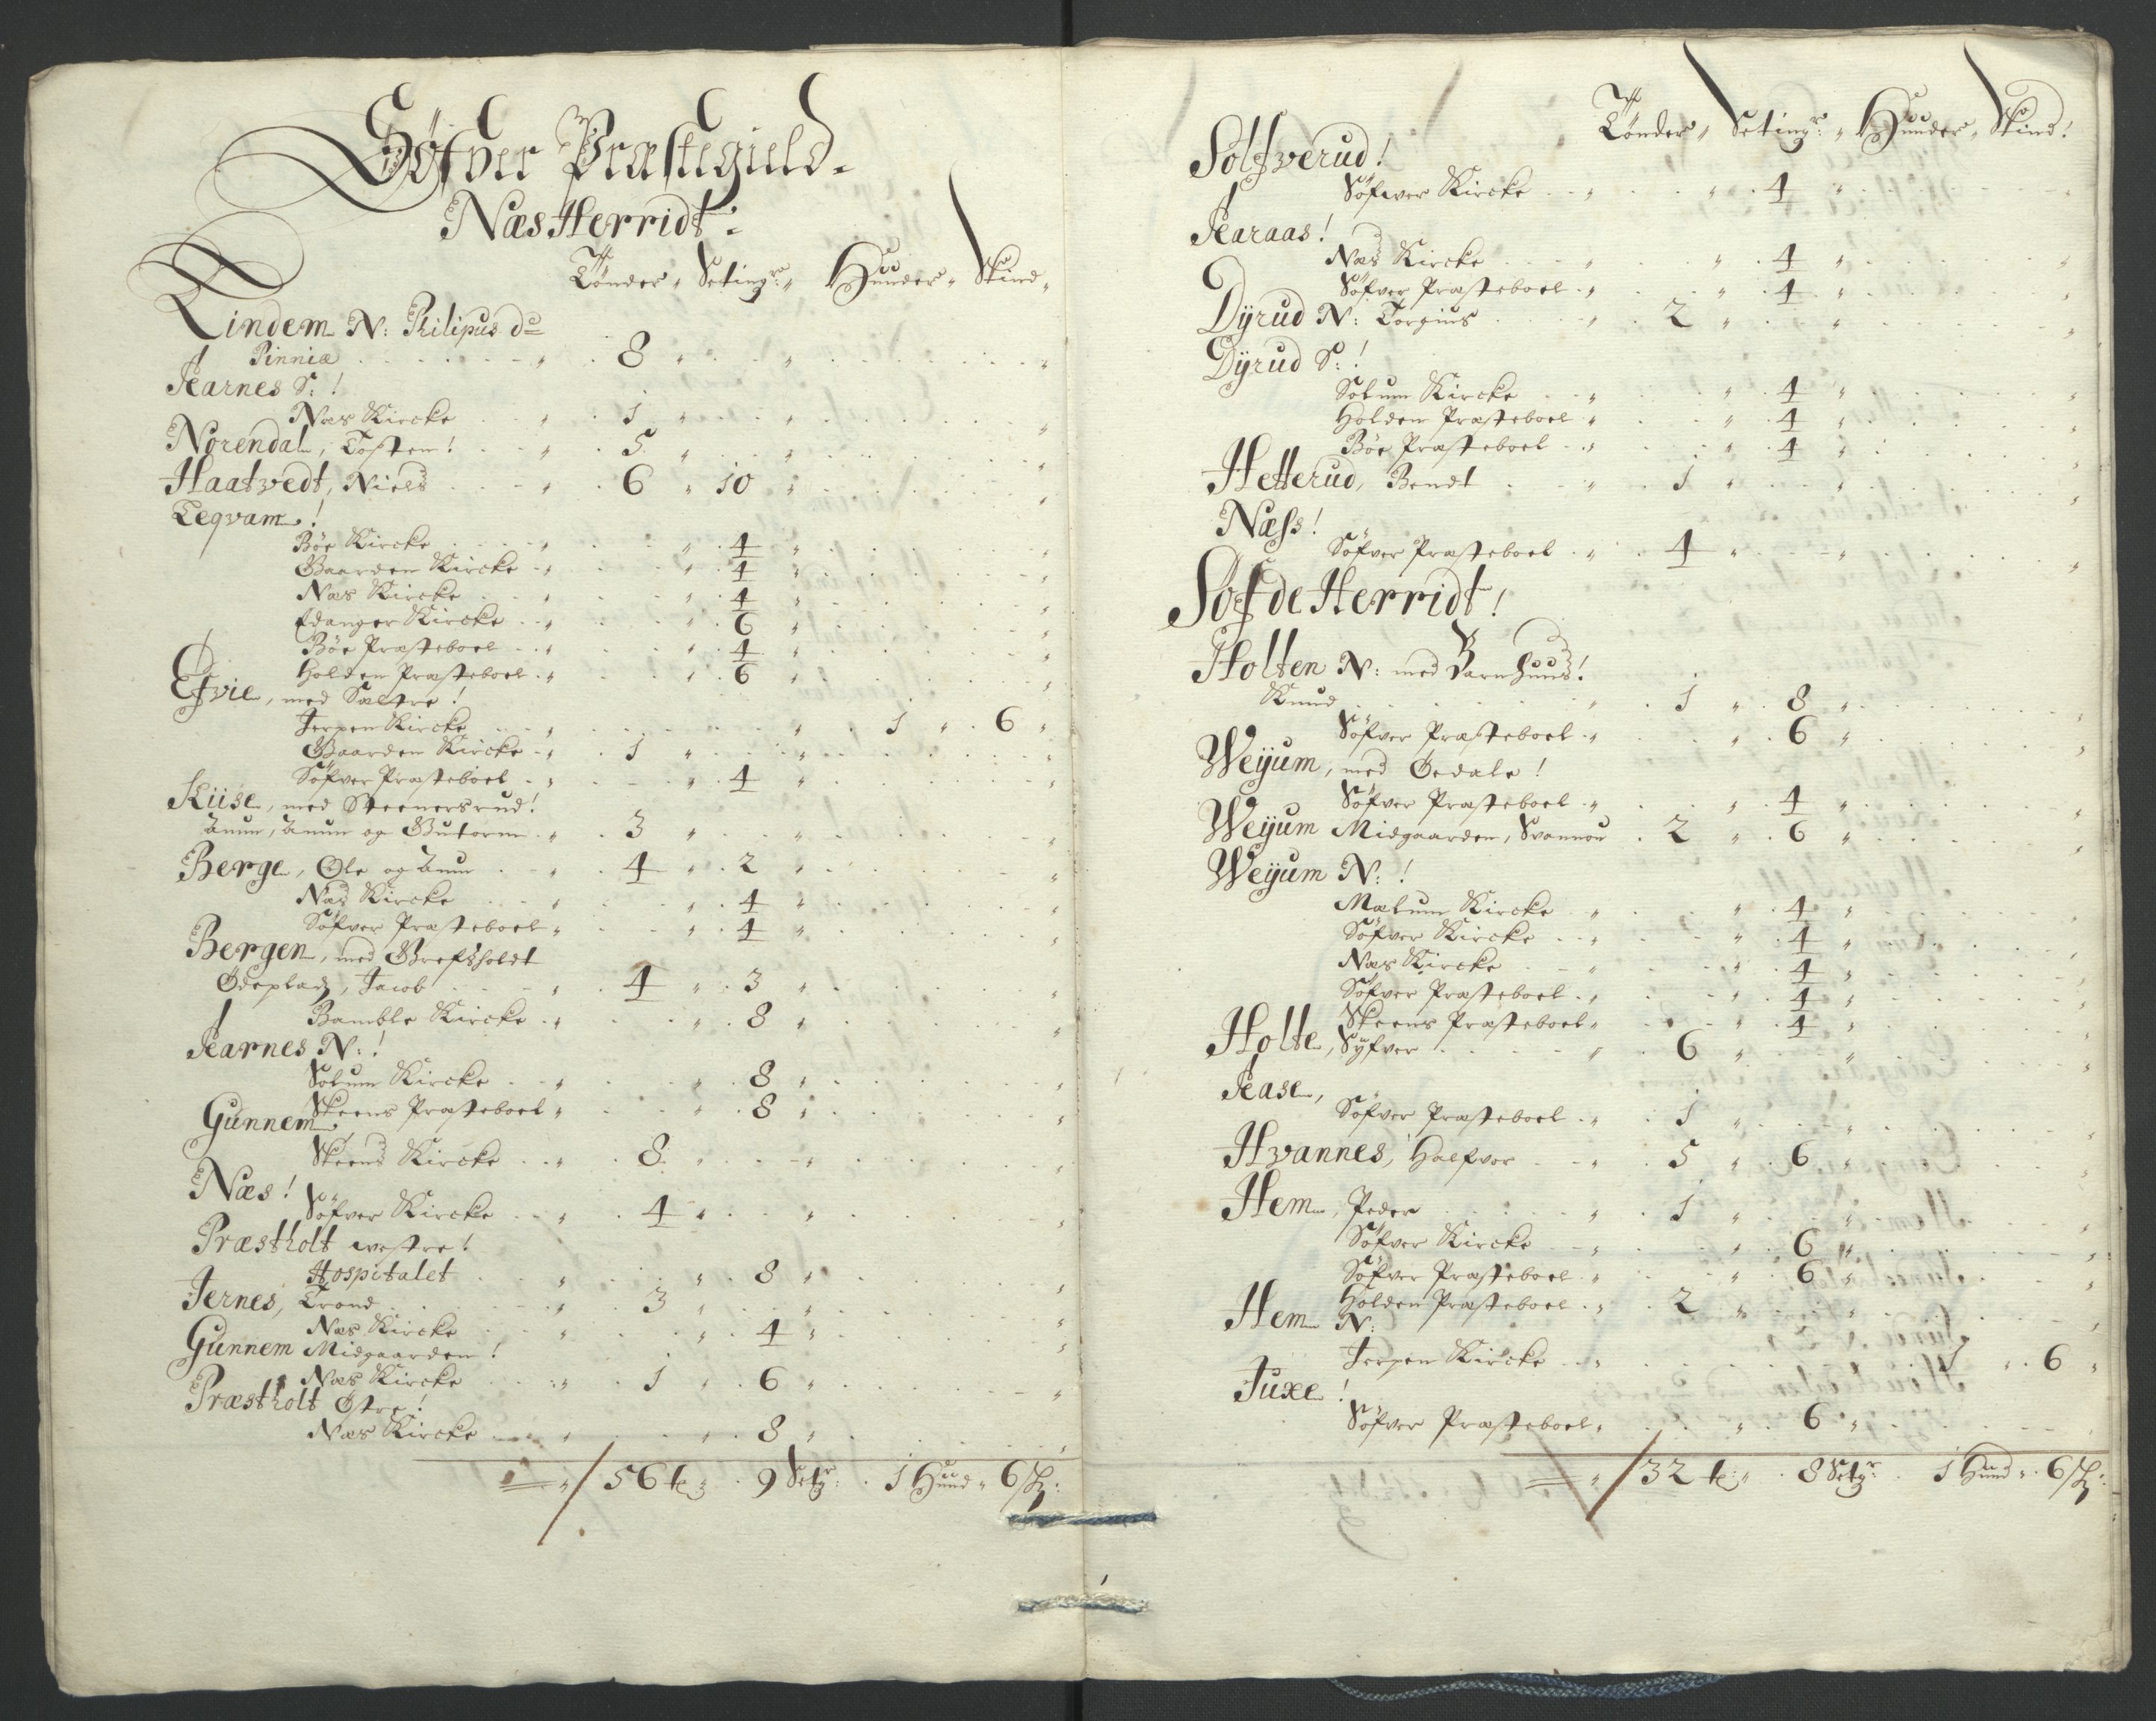 Söfver Præstegield.
Næs Herridt:
Tönder " Seting:r " Hunder " Skind "
Lindem N: Philipus d:
Pinniæ " 8 " " "
Aarnes S: !
Næs Kircke " 1 " " "
Norendal, Tosten! " 5 " " "
Haatvedt, Niels " 6 " 10 " "
Teqvam !
Böe Kircke " " 4 " "
Gaarden Kircke " " 4 " "
Næs Kircke " " 4 " "
Edanger Kircke " " 6 " "
Böe Præsteboel " " 4 " "
Holden Præsteboel " " 6 " "
Efvie, med Sæltre !
Jerpen Kircke " " 1 " 6 "
Gaarden Kircke " 1 " " "
Söfver Præsteboel " " 4 " "
Kiise, med Steenersrud!
Anun, Anun og Gutorm " 3 " " "
Berge, Ole og Anun " 4 " 2 " "
Næs Kircke " " 4 " "
Söfver Præsteboel " " 4 " "
Bergen, med Grefsholdt
Ödeplads, Jacob " 4 " 3 " "
Bamble Kircke " " 8 " "
Aarnes N: !
Solum Kircke " " 8 " "
Skeens Præsteboel " " 8 " "
Gunnem,
Skeens Kircke " 8 " " "
Næs !
Söfver Kircke " 4 " " "
Præstholt westre !
Hospitalet " " 8 " "
Jernes, Trond " 3 " " "
Næs Kircke " " 4 " "
Gunnem Midgaarden !
Næs Kircke " 1 " 6 " "
Præstholt Östre !
Næs Kircke " " 8 " "
" / 56 t: " 9 Setgr: 1 Hund " 6 sk:
Tönder " Seting:r " Hunder " Skind !
Solfverud !
Söfver Kircke " " 4 " "
Aaraas !
Næs Kircke " " 4 " "
Söfver Præsteboel " " 4 " "
Dÿrud N: Torgius " 2 " " "
Dÿrud S: !
Solum Kircke " " 4 " "
Holden Præsteboel " " 4 " "
Böe Præsteboel " " 4 " "
Hetterud, Bendt " 1 " " "
Næss !
Söfver Præsteboel " 4 " " "
Söfde Herridt !
Holten N: med Barnhuus !
Knud " 1 " 8 " "
Söfver Præsteboel " " 6 " "
Weÿum, med Öedale !
Söfver Præsteboel " " 4 " "
Weÿum Midgaarden, Svannou 2 " 6 " "
Weÿum N: !
Mælum Kircke " " 4 " "
Söfver Kircke " " 4 " "
Næs Kircke " " 4 " "
Söfver Præsteboel " " 4 " "
Skeens Præsteboel " " 4 " "
Holte, Sÿfver " 6 " " "
Aase,
Söfver Præsteboel " 1 " " "
Hvannes, Halfvor " 5 " 6 " "
Hem, Peder " 1 " " "
Söfver Kircke " " 6 " "
Söfver Præsteboel " " 6 " "
Holden Præsteboel " 2 " " "
Hem N:
Jerpen Kircke " 1 " 6 "
Juxe !
Söfver Præsteboel " " 6 " "
" / 32 t: " 8 Setgr: 1 Hund " 6 sk: